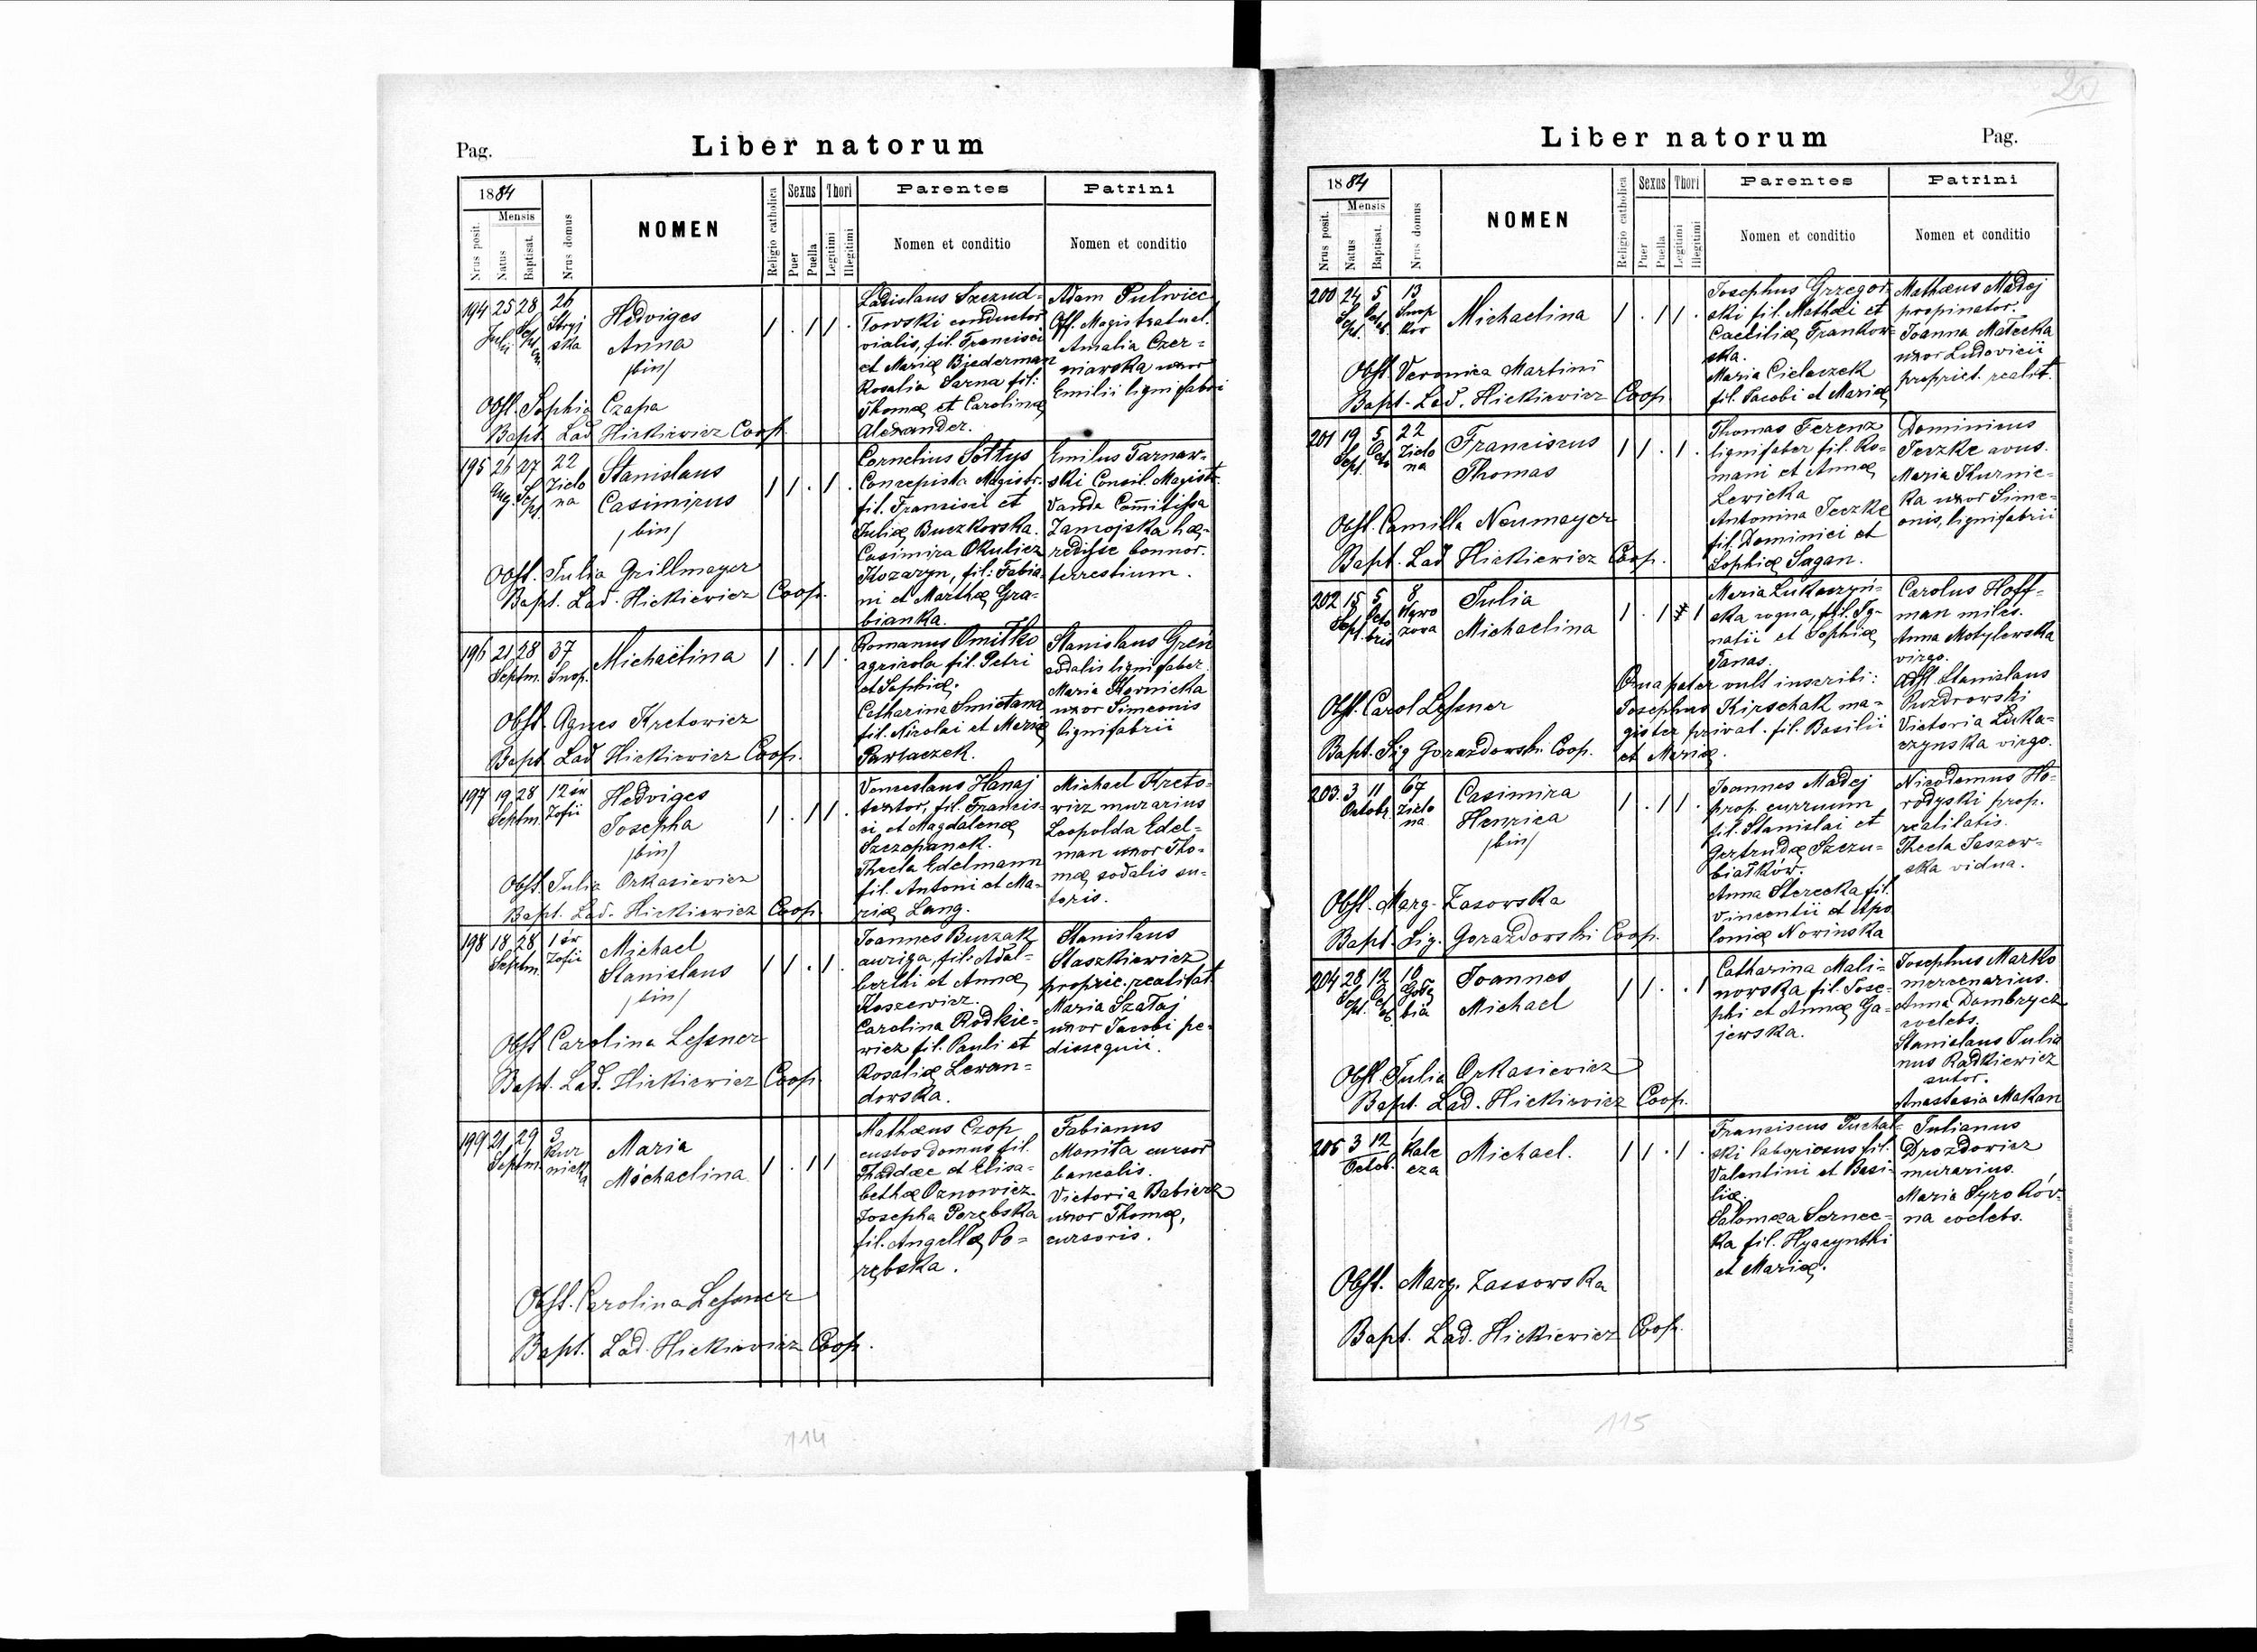 Pag.
Liber natorum
1884
Mensis
Nrus posit.
Natus
Baptisat.
Nrus domus
NOMEN
Religio catholica
Sexus
Puer
Puella
Thori
Legitimi
Illegitimi
Parentes
Nomen et conditio
Patrini
Nomen et conditio
194 25 28 26
Hedviges
Anna
/bin/
Obst. Sophia Czapa
Bapt. Lad. Hickiewicz Coop.
Ladislaus Szczud-
łowski conductor
vialis, fil. Francisci
et Mariæ Biederman
Rosalia Sarna fil:
Thomæ et Carolinæ
Alexander.
Adam Pulwiec
Off. Magistratual.
Amalia Czer-
niawska uxor
Emilii lignifabri
195 26 27 22
Aug. Sept. Zielo
na
Stanislaus
Casimirus
/bin/
Obst. Julia Grillmayer
Bapt. Lad. Hickiewicz Coop.
Cornelius Sołtys
Concepista Magistr.
fil. Francisci et
Juliæ Buczkowska.
Casimira Okulicz
Kozaryn, fil: Fabia-
ni et Marthæ Gra-
bianka.
Emilus Tarnaw-
ski Consil. Magistr.
Vanda Comitissa
Zamojska hæ-
redisse bonnor.
terrestium.
196 21 28 37
Septm. Snop.
Michaëlina
Obst. Agnes Kretowicz
Bapt. Lad. Hickiewicz Coop.
Romanus Omiłko
agricola fil. Petri
et Sophiæ.
Catharina Smietana
fil. Nicolai et Mariæ
Pawlaczek.
Stanislaus Gren
sodalis lignifaber.
Maria
uxor Simeonis
lignifabrii
197 19 28 12 św
Septm. Zofii
Hedviges
Josepha
/bin/
Obst. Julia Orkasiewicz
Bapt. Lad. Hickiewicz Coop.
Venceslaus Hanaj
textor, fil. Francis-
ci et Magdalenæ
Szczepanek.
Thecla Edelmann
fil. Antoni et Ma-
riæ Lang.
Michael Kreto-
wicz murarius
Leopolda Edel-
man uxor Tho-
mæ sodalis su-
toris.
198 18 28 1 św
Septm. Zofii
Michael
Stanislaus
/bin/
Obst. Carolina Lessner
Bapt. Lad. Hickiewicz Coop.
Joannes Buczak
auriga, fil: Adal-
berthi et Annæ
Koszewicz.
Carolina Rodkie-
wicz fil. Pauli et
Rosaliæ Lewan-
dowska.
Stanislaus
Staszkiewicz
propric. realitat.
Maria Szałaj
uxor Jacobi pe-
dissequii.
199 21 29 3
Septm.
Maria
Michaelina
Obst. Carolina Lessner
Bapt. Lad. Hickiewicz Coop.
Mathæus Czop
custos domus fil.
Thaddæe et Elisa-
bethæ Oznowicz.
Josepha Porębska
fil. Angellæ Po-
rębska.
Fabianus
Monita cursor
bancalis.
Victoria Babierz
uxor Thomæ,
cursoris.
114
Liber natorum
Pag.
1884
Mensis
Nrus posit.
Natus
Baptisat.
Nrus domus
NOMEN
Religio catholica
Sexus
Puer
Puella
Thori
Legitimi
Illegitimi
Parentes
Nomen et conditio
Patrini
Nomen et conditio
200 24 5 13
Michaelina
Obst. Veronica Martini
Bapt. Lad. Hickiewicz Coop.
Josephus Grzegor-
ski fil. Mathæi et
Caeciliæ Frankow-
ska.
Maria Cielaszek
fil. Jacobi et Mariæ
Mathæus Madej
propinator.
Joanna Małecka
uxor Ludovicii
propriet. realit.
201 19 5 22
Sept. Octo Zielo
na
Franciscus
Thomas
Obst. Camilla Neumayer
Bapt. Lad. Hickiewicz Coop.
Thomas Ferenz
lignifaber, fil. Ro-
mani et Annæ
Lewicka
Antonina Jeczke
fil. Dominici et
Sophiæ Sagan.
Dominicus
Jeczke avus.
Maria Kurnic-
ka uxor Sime-
onis, lignifabrii
202 15 5 8
Julia
Michaelina
Obst. Carol Lessner
Bapt. Sig. Gorazdowski Coop.
Maria Łukaczyń-
ska cogna, fil. Ig-
natii et Sophiæ
Janas.
Qua pater vult inscribi:
Josephus Kirschak ma-
gister privat. fil. Basilii
et Mariæ.
Carolus Hoff-
man miles.
Anna Motylewska
virgo.
Asst. Stanislaus
Puzdrowski
Victoria Łuka-
czynska virgo.
203. 3 11 67
Octobr. Zielo
na
Casimira
Henrica
/bin/
Obst. Marg. Zasowska
Bapt. Sig. Gorazdowski Coop.
Joannes Madej
prop. curruum
fil. Stanislai et
Gertrudæ Szczu-
białków.
Anna Sterecka fil.
Vincentii et Apo
loniæ Nowinska
Nicodemus Ho-
rodyski prop.
realitatis.
Thecla Jaszow-
ska vidua.
204 28 12 10
Joannes
Michael
Obst. Julia Orkasiewicz
Bapt. Lad. Hickiewicz Coop.
Catharina Mali-
nowska fil. Jose-
phi et Annæ Ga-
jewska.
Josephus Marko
mercenarius.
Anna Dombrycz
coelebs.
Stanislaus Julia
nus Radkiewicz
sutor.
Anastasia Makan
205 3 12
Octob.
Michael.
Obst. Marg. Zassowska
Bapt. Lad. Hickiewicz Coop.
Franciscus Puchal-
ski laboriosus fil.
Valentini et Basi-
liæ.
Salomæa Sernec-
ka fil. Hyacynthi
et Mariæ.
Julianus
Drozdowicz
murarius.
Maria Syroków-
na coelebs.
115